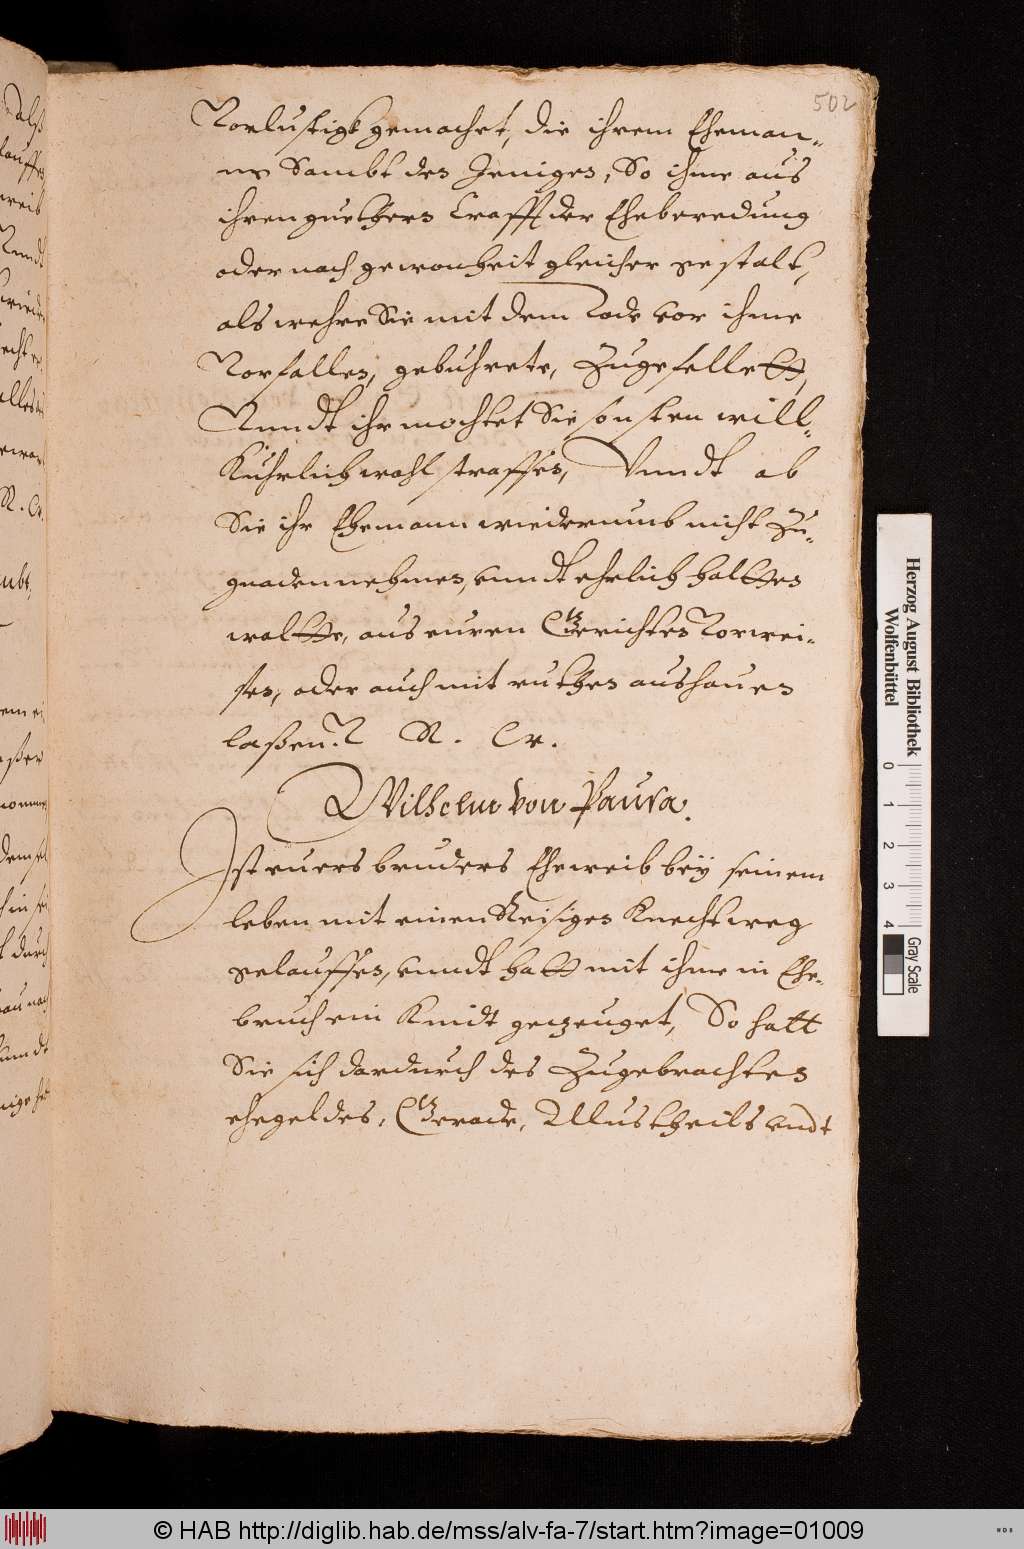 502
Vorlustigk gemachet, die ihrem Eheman-
ne Sambt des Jeniges, So ihme aus
ihren guethers Crafft der Eheberedung
oder nach gewonheit gleicher gestalt,
als wehre Sie mit dem Tode vor ihme
Vorfalles, gebuhrete, Zugefelleth,
Vnndt ihr mochtet Sie sonsten will-
kührlich wohl straffes, Vnndt ob
Sie ihr Ehemann wiederumb nicht Zu-
gnaden nehmes, vnndt ehrlich halthes
wolthe, aus euren Gerichtes Vorwei-
ses, oder auch mit ruthes aushaues
laßen. V. R. W.
Wilhelm von Pausa.
Ist euers bruders Eheweib beÿ seinem
leben mit einen Reisiges Knecht weg
gelauffes, vnndt hatt mit ihme in Ehe-
bruch ein Kindt geczeuget, So hatt
Sie sich dardurch des Zugebrachtes
ehegeldes, Gerade, Mustheils vndt
Herzog August Bibliothek
Wolfenbüttel
0 1 2 3 4
Gray Scale
© HAB http://diglib.hab.de/mss/alv-fa-7/start.htm?image=01009